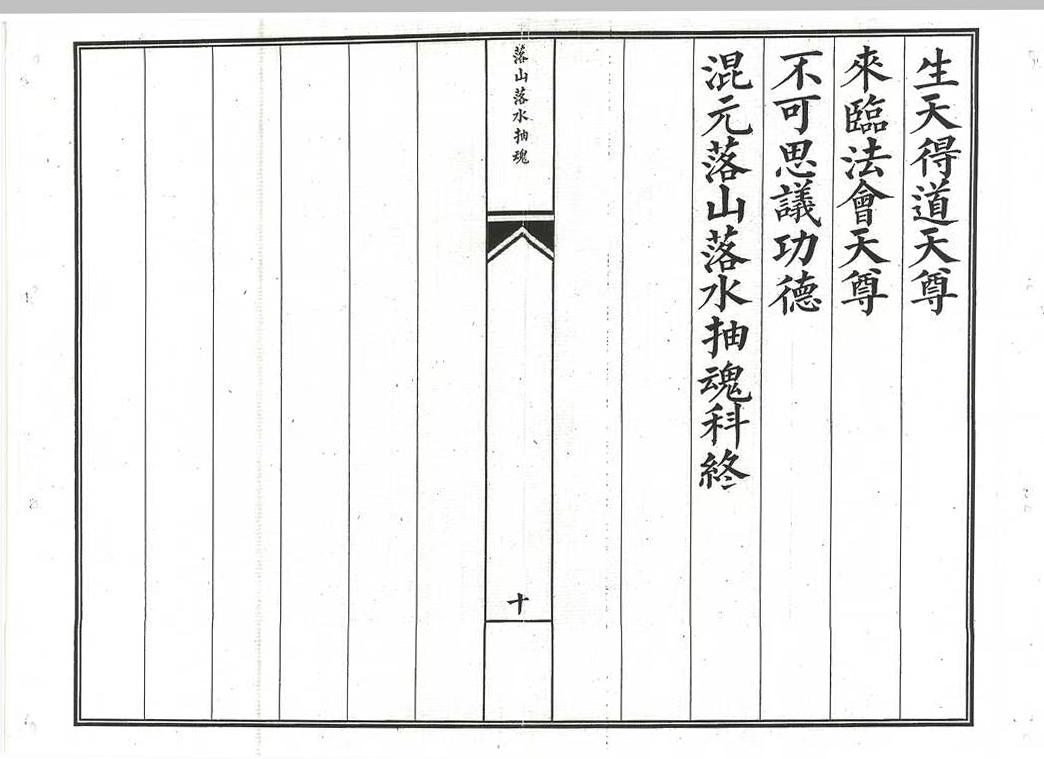 生天得道天尊
來臨法會天尊
不可思議功德
混元落山落水抽魂科終
落山落水抽魂
十